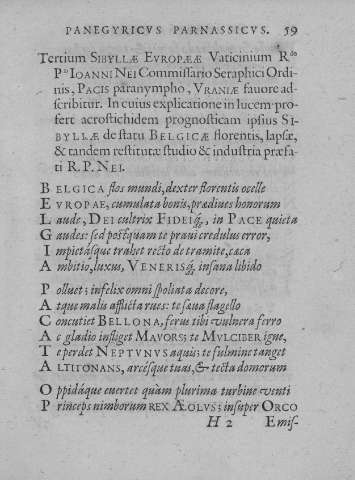 PANEGYRICVS PARNASSICVS. 59
Tertium SIBYLLÆ EVROPÆÆ Vaticinium R.do
P.o IOANNI NEI Commissario Seraphici Ordi-
nis, PACIS paranympho, VRANIÆ fauore ad-
scribitur. In cuius explicatione in lucem pro-
fert acrostichidem prognosticam ipsius SI-
BYLLÆ de statu BELGICÆ florentis, lapsæ,
& tandem restitutæ studio & industria præfa-
ti R. P. NEI.
BELGICA flos mundi, dexter florentis ocelle
EVROPAE, cumulata bonis, prædiues honorum
Laude, DEI cultrix FIDEIq́;, in PACE quieta
Gaudes: sed postquam te praui credulus error,
Impietásque trahet recto de tramite, cæca
Ambitio, luxus, VENERISq́; insana libido
Polluet; infelix omni spoliata decore,
Atque malis afflicta rues: te sæua flagello
Concutiet BELLONA, feru tibi vulnera ferro
Ac gladio infliget MAVORS; te MVLCIBER igne,
Te perdet NEPTVNVS aquis; te fulmine tanget
ALTITONANS, arcésque tuas, & tecta domorum
Oppidáque euertet quàm plurima turbine venti
Princeps nimborum REX ÆOLVS; insuper ORCO
H 2 Emis-